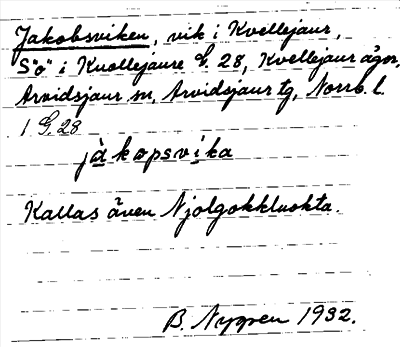 Jakobsviken, vik i Kvellejaur,
S"ö" i Kuollejaure G. 28, Kvellejaur ägor,
Arvidsjaur sn, Arvidsjaur tg, Norrb. l.
1 G. 28
jàkopsvika
Kallas även Njolgokkluokta.
B. Nygren 1932.